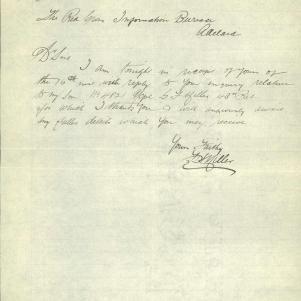 The Red Cross Information Bureau
Adelaide
D' Sirs
I am tonight in receipt of yours of
the 16th inst with reply to your inquiry relative
to my Son No 4821 Miller 48th
for which I thank you I will anxiously await
any fuller details which you may receive
Yours Faithfy
Miller